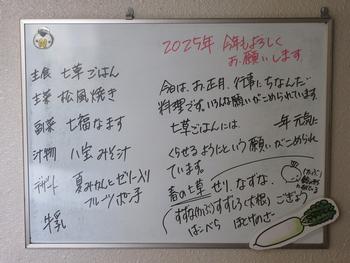 2025年 今年もよろしく
お願いします。
主食 七草ごはん
主菜 松風焼き
副菜 七福なます
汁物 八宝みそ汁
デザート 夏みかんとゼリー入り
フルーツポンチ
牛乳
今日は、お正月、行事にちなんだ
料理です。いろんな願いがこめられています。
七草ごはんには、一年元気に
くらせるようにという願いがこめられ
ています。
春の七草 せり、なずな、
すずな(かぶ)すずしろ(大根)ごぎょう
はこべら ほとけのざ
(かぶ)